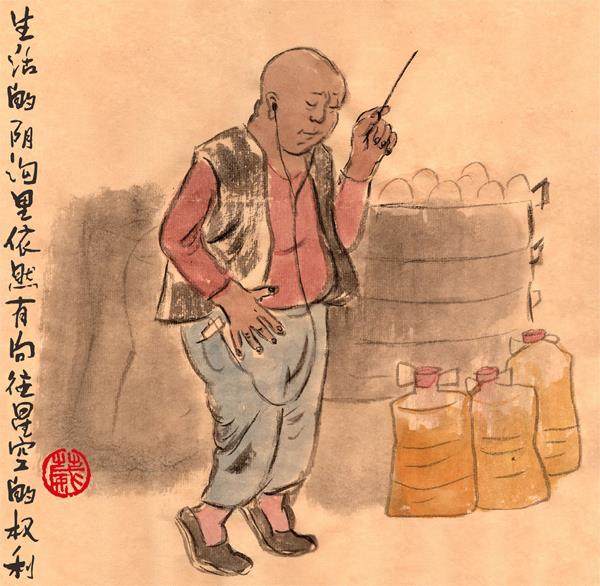 生活的阴沟里依然有向往星空的权利